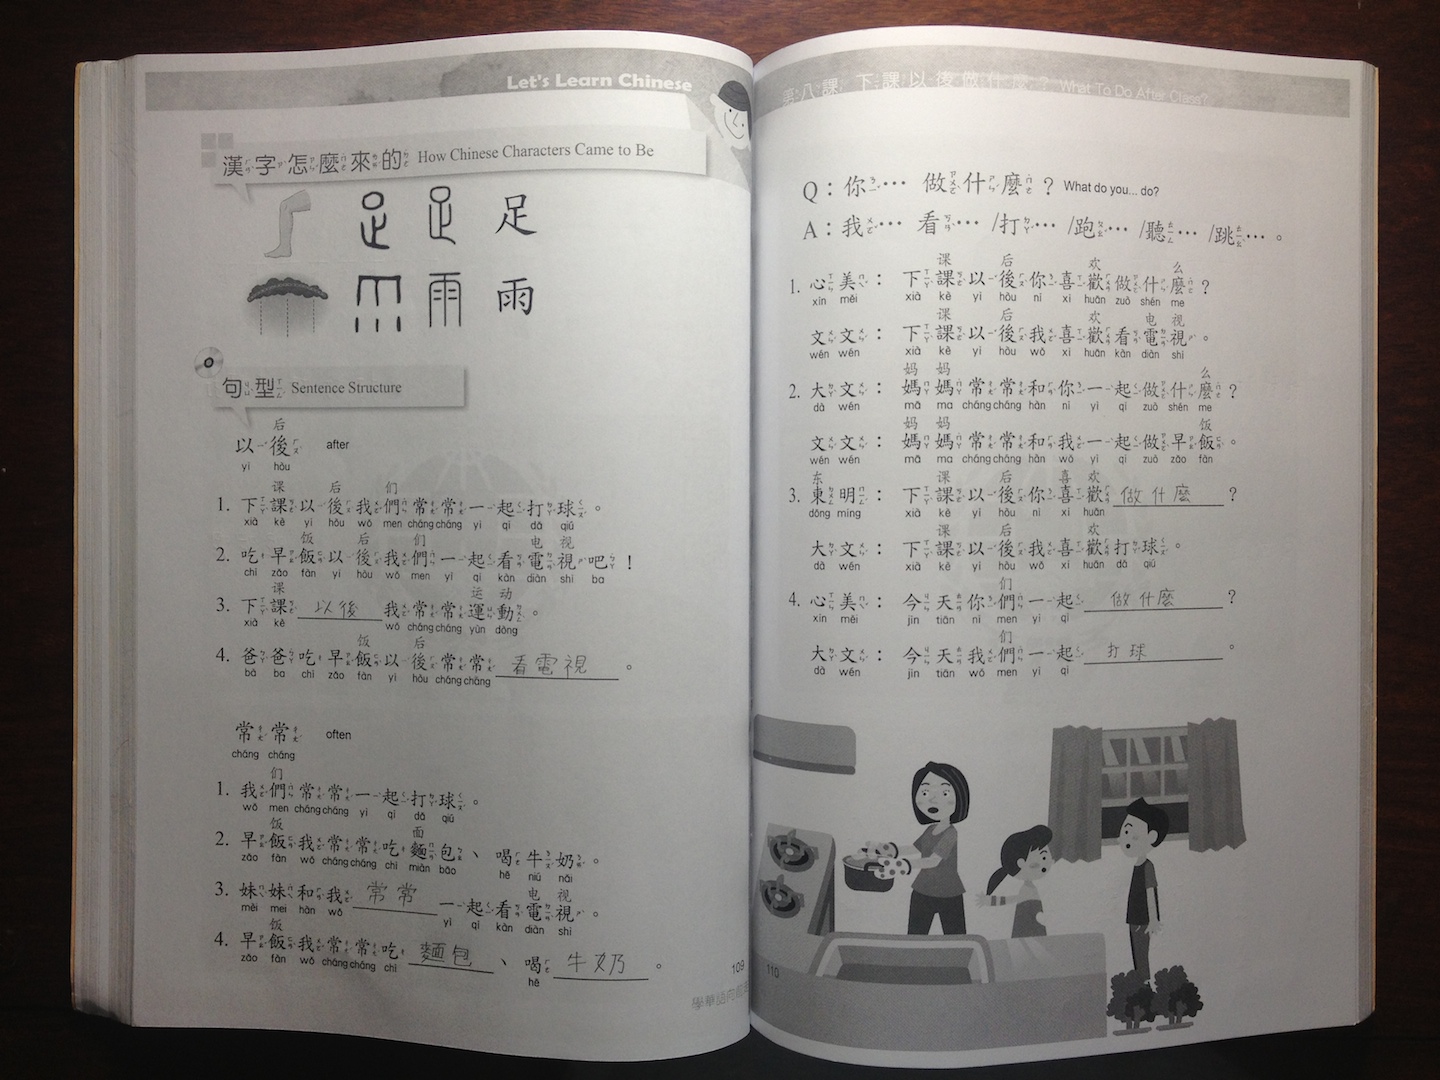 Let's Learn Chinese
漢字怎麼來的 How Chinese Characters Came to Be
足 足 足
雨 雨 雨
句型 Sentence Structure
后
以後 after
yǐ hòu
课 后 们
1. 下課以後我們常常一起打球。
xià kè yǐ hòu wǒ men cháng cháng yì qǐ dǎ qiú
饭 后 们 电 视
2. 吃早飯以後我們一起看電視吧！
chī zǎo fàn yǐ hòu wǒ men yì qǐ kàn diàn shì ba
课 运 动
3. 下課以後我常常運動。
xià kè wǒ cháng cháng yùn dòng
饭 后
4. 爸爸吃早飯以後常常看電視。
bà ba chī zǎo fàn yǐ hòu cháng cháng
常常 often
cháng cháng
们
1. 我們常常一起打球。
wǒ men cháng cháng yì qǐ dǎ qiú
饭 面
2. 早飯我常常吃麵包、喝牛奶。
zǎo fàn wǒ cháng cháng chī miàn bāo hē niú nǎi
电 视
3. 妹妹和我常常一起看電視。
mèi mei hàn wǒ yì qǐ kàn diàn shì
饭
4. 早飯我常常吃麵包、喝牛奶。
zǎo fàn wǒ cháng cháng chī hē
109
第八課 下課以後做什麼？ What To Do After Class?
Q：你… 做什麼？ What do you... do?
A：我… 看… /打… /跑… /聽… /跳…。
课 后 欢 么
1. 心美：下課以後你喜歡做什麼？
xīn měi xià kè yǐ hòu nǐ xǐ huān zuò shén me
课 后 欢 电 视
文文：下課以後我喜歡看電視。
wén wén xià kè yǐ hòu wǒ xǐ huān kàn diàn shì
妈 妈 么
2. 大文：媽媽常常和你一起做什麼？
dà wén mā ma cháng cháng hàn nǐ yì qǐ zuò shén me
妈 妈 饭
文文：媽媽常常和我一起做早飯。
wén wén mā ma cháng cháng hàn wǒ yì qǐ zuò zǎo fàn
东 课 后 喜 欢
3. 東明：下課以後你喜歡做什麼？
dōng míng xià kè yǐ hòu nǐ xǐ huān
课 后 欢
大文：下課以後我喜歡打球。
dà wén xià kè yǐ hòu wǒ xǐ huān dǎ qiú
们
4. 心美：今天你們一起做什麼？
xīn měi jīn tiān nǐ men yì qǐ
们
大文：今天我們一起打球。
dà wén jīn tiān wǒ men yì qǐ
110